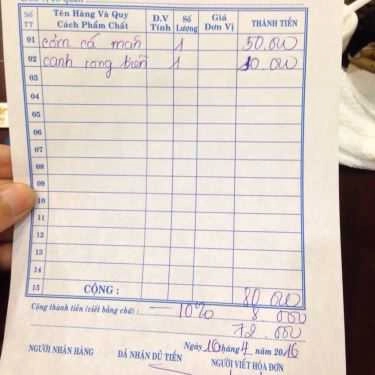 Số TT Tên Hàng Và Quy Cách Phẩm Chất Đ.V Tính Số Lượng Giá Đơn Vị THÀNH TIỀN
01 cơm cá mặn 1 50.000
02 canh rong biển 1
03
04
05
06
07
08
09
10
11
12
13
14
15 CỘNG : 80 000
Cộng thành tiền (viết bằng chữ) : — 10% 8 000
72 . 000
Ngày 16 tháng 4 năm 2016
NGƯỜI NHẬN HÀNG ĐÃ NHẬN ĐỦ TIỀN NGƯỜI VIẾT HÓA ĐƠN